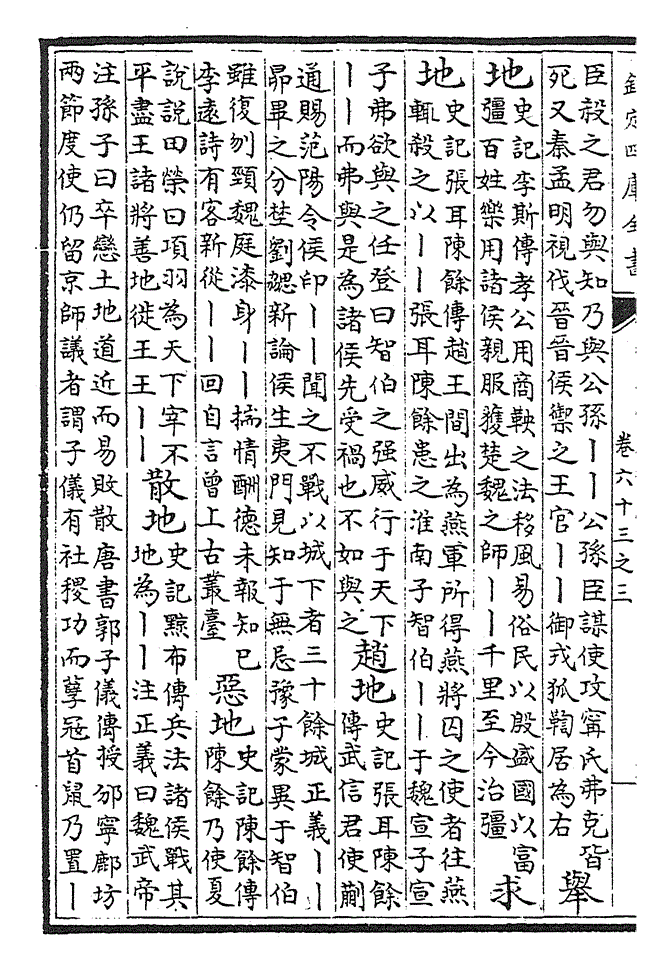 欽定四庫全書
卷六十三之三
臣殺之君勿與知乃與公孫丨丨公孫臣謀使攻甯氏弗克皆
死又秦孟明視伐晉晉侯禦之王官丨丨御戎狐鞫居為右
舉
地
史記李斯傳孝公用商鞅之法移風易俗民以殷盛國以富
彊百姓樂用諸侯親服獲楚魏之師丨丨千里至今治彊
求
地
史記張耳陳餘傳趙王間出為燕軍所得燕將囚之使者往燕
輒殺之以丨丨張耳陳餘患之淮南子智伯丨丨于魏宣子宣
子弗欲與之任登曰智伯之强威行于天下
丨丨而弗與是為諸侯先受禍也不如與之
趙地
史記張耳陳餘
傳武信君使蒯
道賜范陽令侯印丨丨聞之不戰以城下者三十餘城正義丨丨
昴畢之分埜劉勰新論侯生夷門見知于無忌豫子蒙異于智伯
雖復刎頸魏庭漆身丨丨揣情酬德未報知已
李遠詩有客新從丨丨回自言曾上古叢臺
惡地
史記陳餘傳
陳餘乃使夏
說說田榮曰項羽為天下宰不
平盡王諸將善地徙王王丨丨
散地
史記黥布傳兵法諸侯戰其
地為丨丨注正義曰魏武帝
注孫子曰卒戀土地道近而易敗散唐書郭子儀傳授邠寧鄜坊
兩節度使仍留京師議者謂子儀有社稷功而孽寇首鼠乃置丨